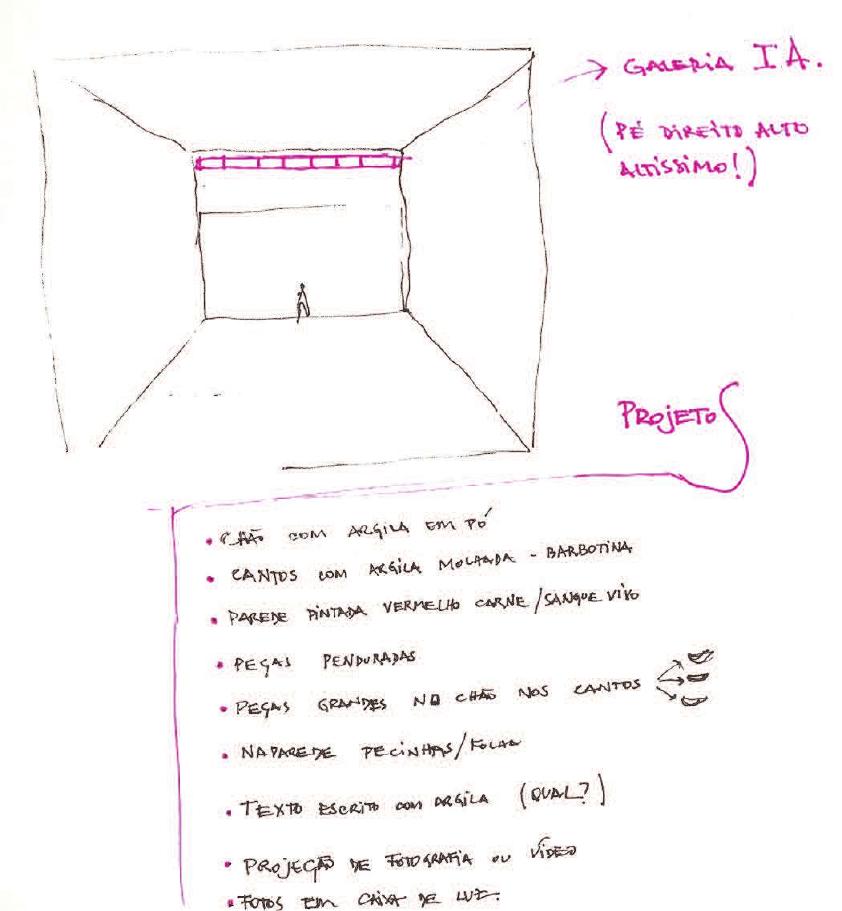 → GALERIA IA.
(PÉ DIREITO ALTO
ALTÍSSIMO!)
PROJETO
• CHÃO COM ARGILA EM PÓ
• CANTOS COM ARGILA MOLHADA - BARBOTINA
• PAREDE PINTADA VERMELHO CARNE/SANGUE VIVO
• PEÇAS PENDURADAS
• PEÇAS GRANDES NO CHÃO NOS CANTOS
• NA PAREDE PECINHAS/
• TEXTO ESCRITO COM ARGILA (QUAL?)
• PROJEÇÃO DE FOTOGRAFIA OU VÍDEO
• FOTOS EM CAIXA DE LUZ.